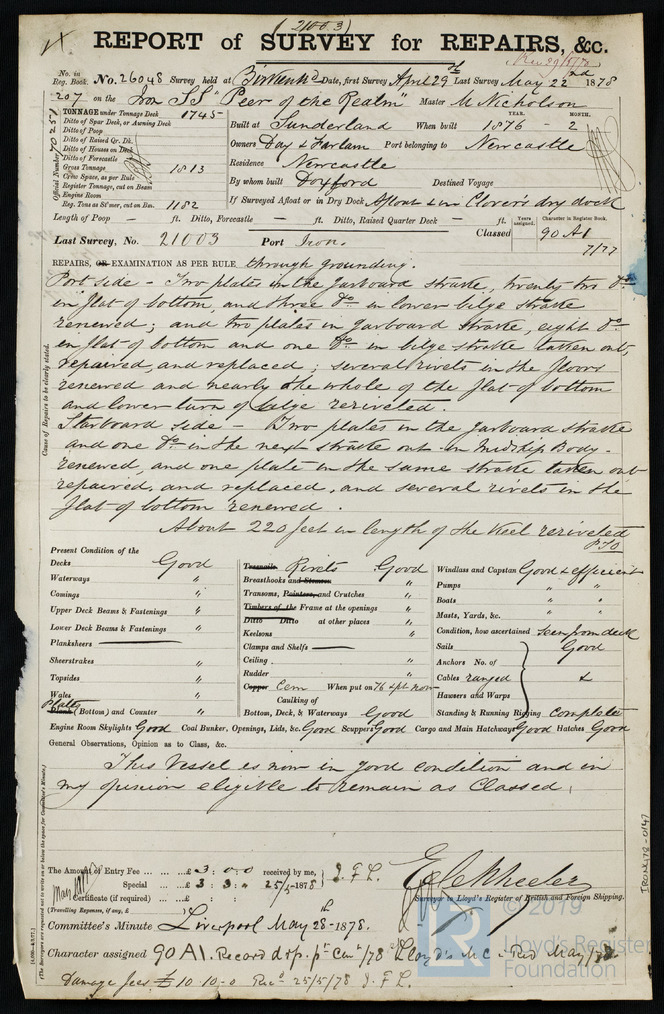 (21003)
REPORT of SURVEY for REPAIRS, &c.
Rec 29/5/78
No. in Reg. Book. No. 26048 Survey held at Birkenhd Date, first Survey April 29th Last Survey May 22nd 1878
207 on the Iron SS "Peer of the Realm" Master M Nicholson
TONNAGE under Tonnage Deck 1745
Ditto of Spar Deck, or Awning Deck
Ditto of Poop
Ditto of Raised Qr. Dk.
Ditto of Houses on Deck
Ditto of Forecastle
Gross Tonnage 1813
Crew Space, as per Rule
Register Tonnage, cut on Beam
Engine Room
Reg. Tons as St'mer, cut on Bm. 1182
Official Number
YEAR. MONTH.
Built at Sunderland When built 1876 2
Owners Day & Harlam Port belonging to Newcastle
Residence Newcastle
By whom built Doxford Destined Voyage
If Surveyed Afloat or in Dry Dock Afloat & in Clover's dry dock
Length of Poop — ft. Ditto, Forecastle — ft. Ditto, Raised Quarter Deck — ft.
Years assigned. Character in Register Book.
Last Survey, No. 21003 Port Iron. Classed 90 A1
7/77
REPAIRS, OR EXAMINATION AS PER RULE through grounding.
Cause of Repairs to be clearly stated.
Port side - Two plates in the garboard strake, twenty two Do
in flat of bottom, and three Do in lower bilge strake
renewed; and two plates in garboard strake, eight Do
in flat of bottom and one Do in bilge strake taken out,
repaired, and replaced; several rivets in the floors
renewed and nearly the whole of the flat of bottom
and lower turn of bilge reriveted.
Starboard side - Two plates in the garboard strake
and one Do in the next strake out in Midship Body -
renewed, and one plate in the same strake taken out
repaired, and replaced, and several rivets in the
flat of bottom renewed.
About 220 feet in length of the Keel reriveted
PTO
Present Condition of the
Decks Good
Waterways "
Comings "
Upper Deck Beams & Fastenings "
Lower Deck Beams & Fastenings "
Planksheers —
Sheerstrakes "
Topsides "
Wales "
Plates
Plank (Bottom) and Counter "
Treenails Rivets Good
Breasthooks and Stemson "
Transoms, Pointers, and Crutches "
Timbers of the Frame at the openings "
Ditto Ditto at other places "
Keelsons "
Clamps and Shelfs —
Ceiling "
Rudder "
Copper Cem When put on 76 & pt now
Caulking of
Bottom, Deck, & Waterways Good
Windlass and Capstan Good & efficient
Pumps " "
Boats " "
Masts, Yards, &c. " "
Condition, how ascertained Seen from deck
Sails Good
Anchors No. of
Cables ranged &
Hawsers and Warps
Standing & Running Rigging complete
Engine Room Skylights Good Coal Bunker, Openings, Lids, &c. Good Scuppers Good Cargo and Main Hatchways Good Hatches Good
General Observations, Opinion as to Class, &c.
This Vessel is now in good condition and in
my opinion eligible to remain as Classed.
The Amount of Entry Fee £3 : 0 : 0 received by me, J. F. L.
Special £3 : 3 : " 25/5/1878
Certificate (if required) £
(Travelling Expenses, if any, £ )
E. C. Wheeler
Surveyor to Lloyd's Register of British and Foreign Shipping.
Committee's Minute Liverpool May 28th 1878.
Character assigned 90 A1. Lloyd's M.C.
Damage fees £10-10-0 Recd 25/5/78 J. F. L.
IRON178-0147
© 2019
Lloyd's Register
Foundation
LR